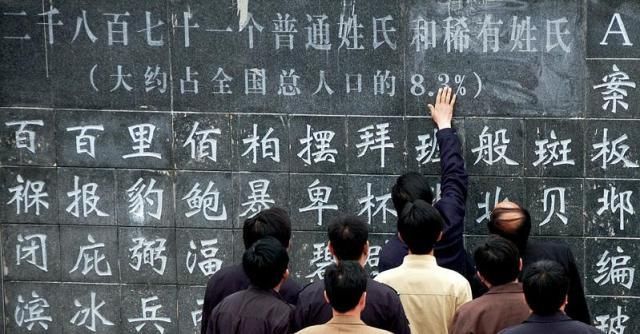 二千八百七十一个普通姓氏和稀有姓氏 A
（大约占全国总人口的8.3%） 案
百 百 里 佰 柏 摆 拜 班 般 斑 板
褓 报 豹 鲍 暴 卑 杯 北 贝 邶
闭 庇 弼 湢 碧 编
滨 冰 兵